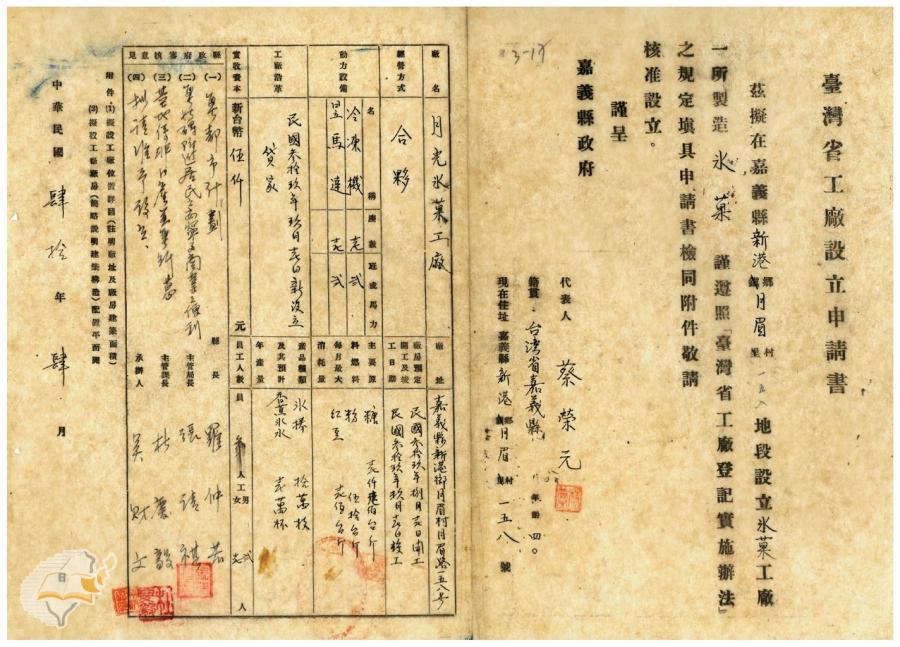 臺灣省工廠設立申請書
茲擬在嘉義縣新港鄉鎮月眉村里一五八地段設立氷菓工廠
一所製造 氷菓 謹遵照「臺灣省工廠登記實施辦法」
之規定填具申請書檢同附件敬請
核准設立。
謹呈
嘉義縣政府
代表人 蔡榮元
籍貫 台湾省嘉義縣 年齡 四〇
現在住址 嘉義縣新港鄉月眉村一五八號
3-17
廠名 月光氷菓工廠
廠址 嘉義縣新港鄉月眉村月眉路一五八号
經營方式 合夥
廠房預定開工及竣工日期 民國叁拾玖年捌月壱日開工
民國叁拾玖年玖月壱日竣工
動力設備
名稱 座數 匹或馬力
冷凍機 壱 弐
昱馬達 壱 弐
主要原料燃料每月最大消耗量
糖 台斤
粉 伍拾台斤
紅豆 壱佰台斤
工廠沿革 民國叁拾玖年玖月壱日新設立
貸家
產品種類及其預計年產量
氷棒 拾萬枝
氷 壱萬杯
實收資本 新台幣 伍仟 元
員工人數 員 人 工 男 弐 女 壱 人
縣政府審核意見
(一) 都市計劃
(二)
(三)
(四) 擬請准予設立。
縣長 羅仲若
主管局長 張靖祺
主管課長 杜震毅
承辦人 吳財文
附件:(1)擬設工廠位置詳圖(註明廠址及廠房建築面積)
(2)擬設工廠廠房(簡略說明建築構造)配置平面圖
中華民國 肆拾年 肆月 日